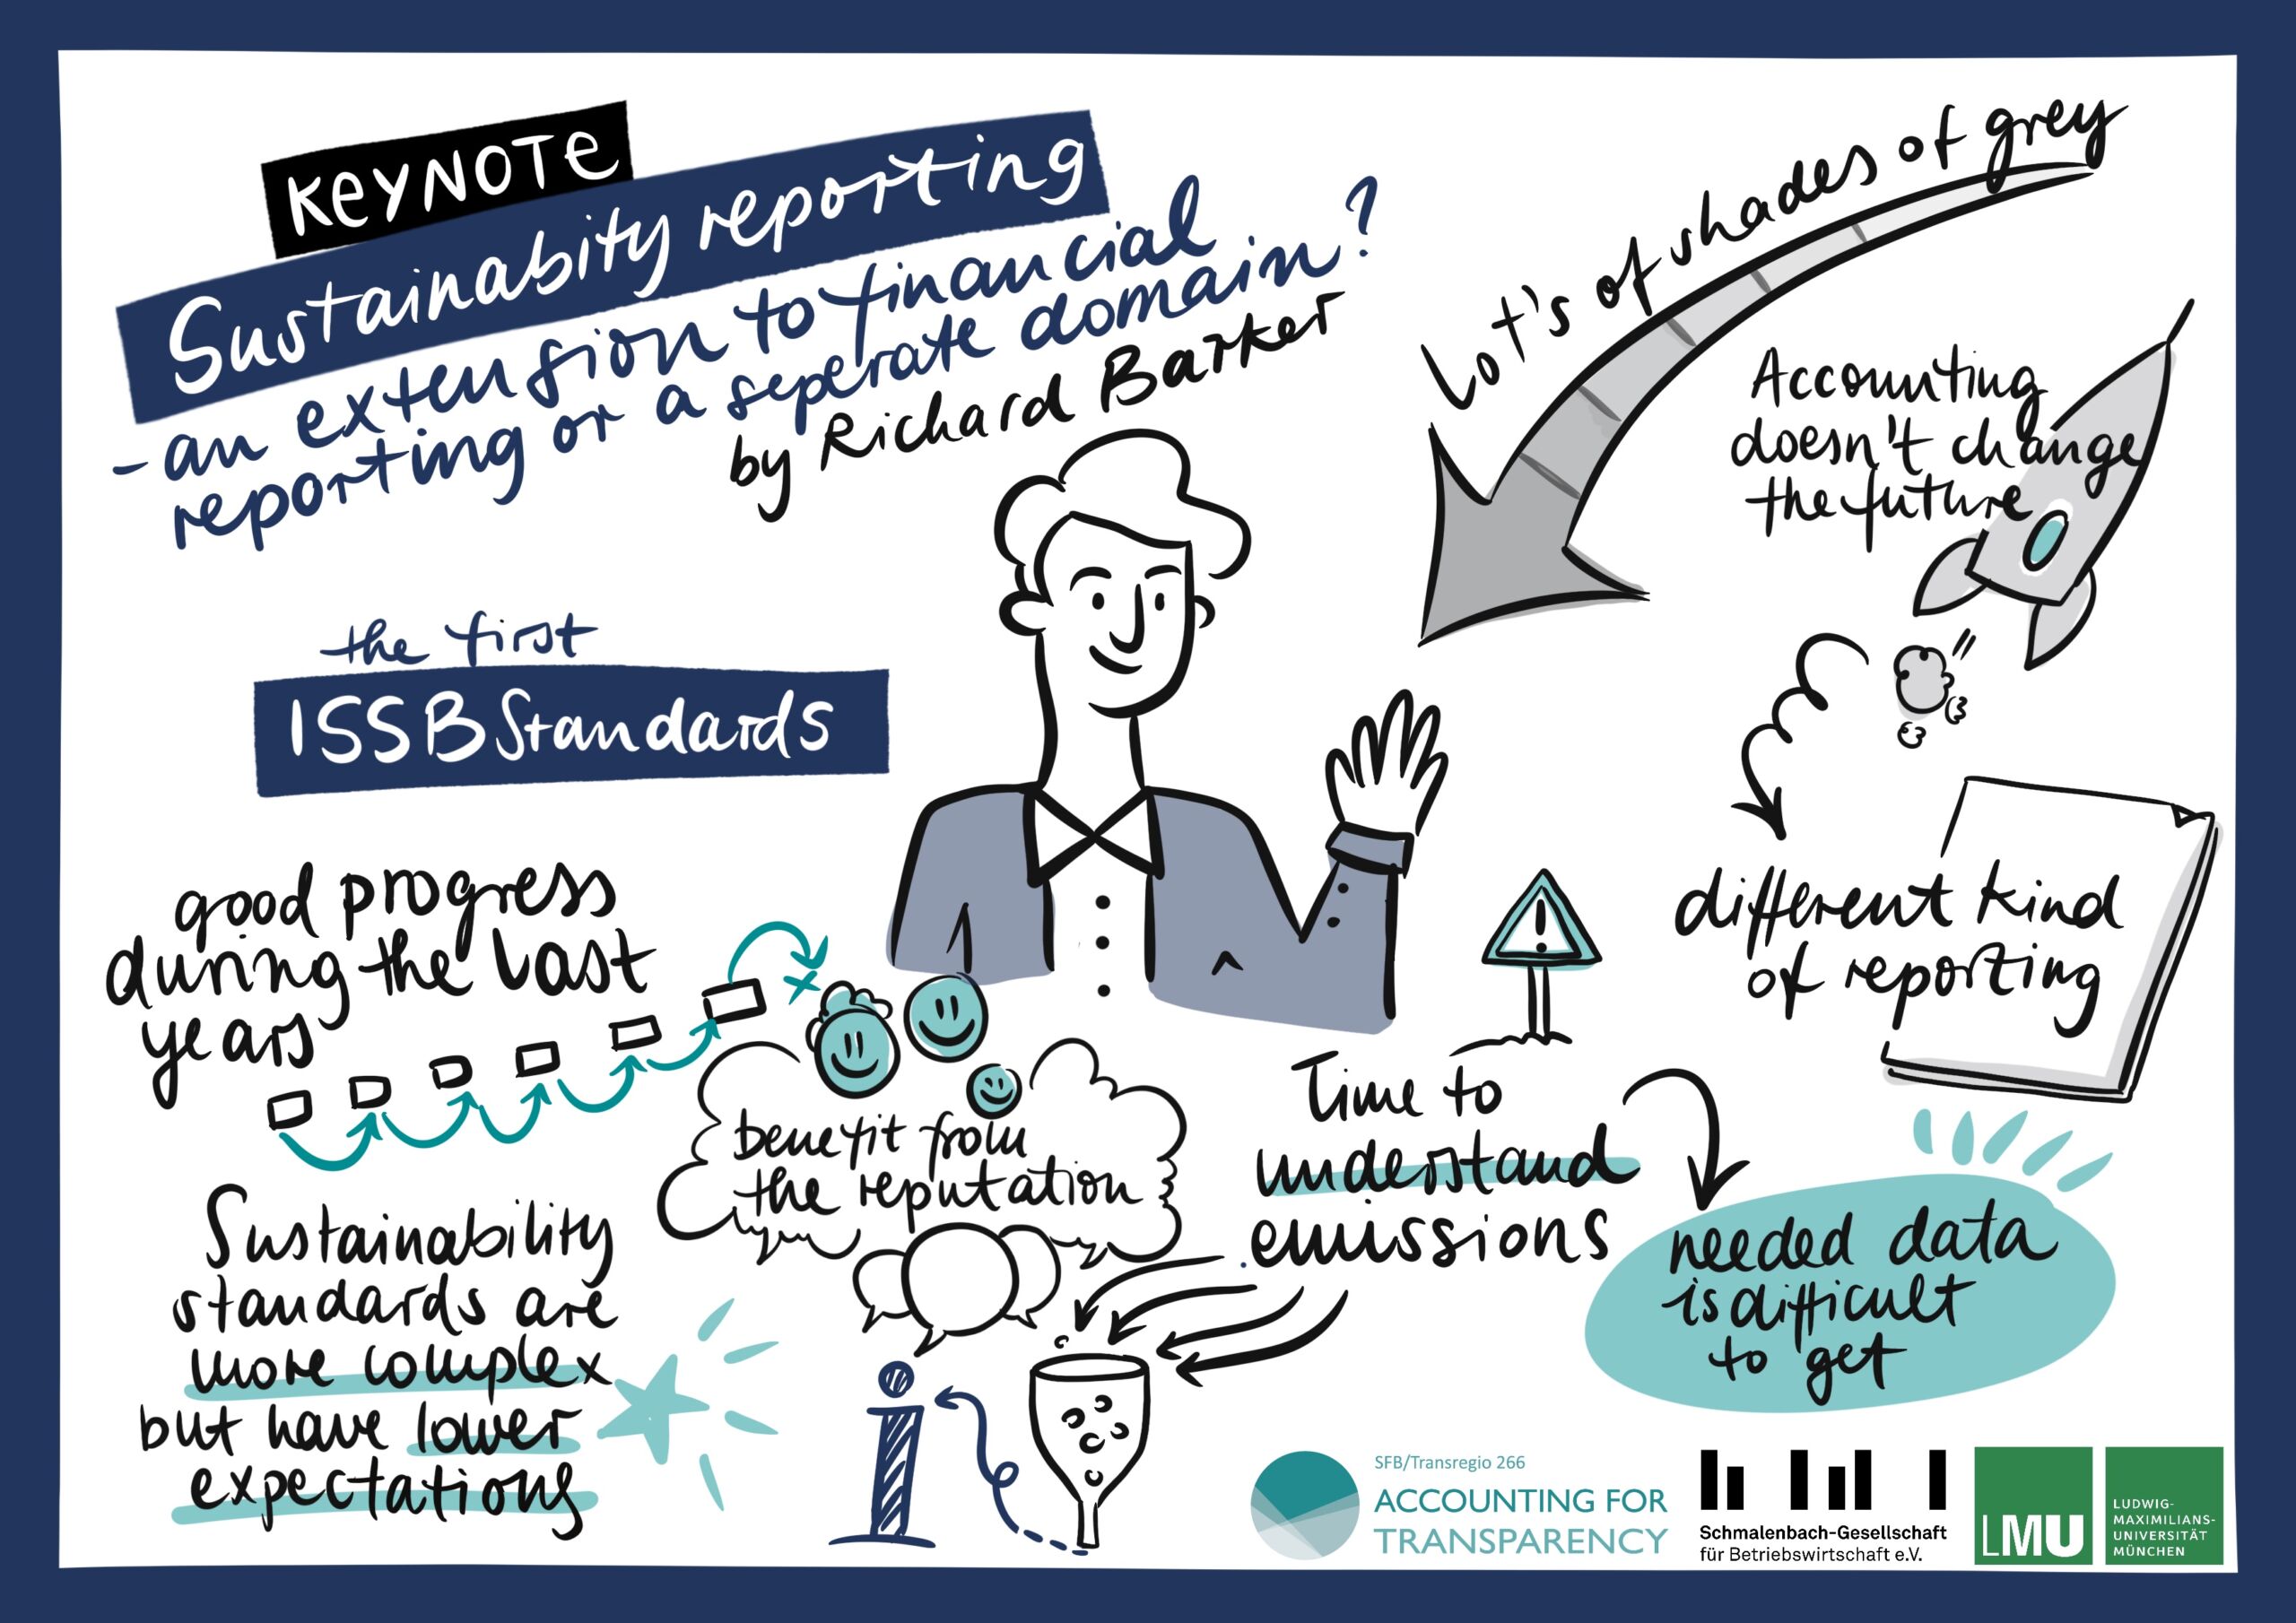 KEYNOTE
Sustainabity reporting
- an extension to financial
reporting or a seperate domain?
by Richard Barker
Lot's of shades of grey
Accounting
doesn't change
the future
the first
ISSB Standards
different kind
of reporting
good progress
during the last
years
benefit from
the reputation
Time to
understand
emissions
needed data
is difficult
to get
Sustainability
standards are
more complex
but have lower
expectations
i
SFB/Transregio 266
ACCOUNTING FOR
TRANSPARENCY
Schmalenbach-Gesellschaft
für Betriebswirtschaft e.V.
LMU
LUDWIG-
MAXIMILIANS-
UNIVERSITÄT
MÜNCHEN